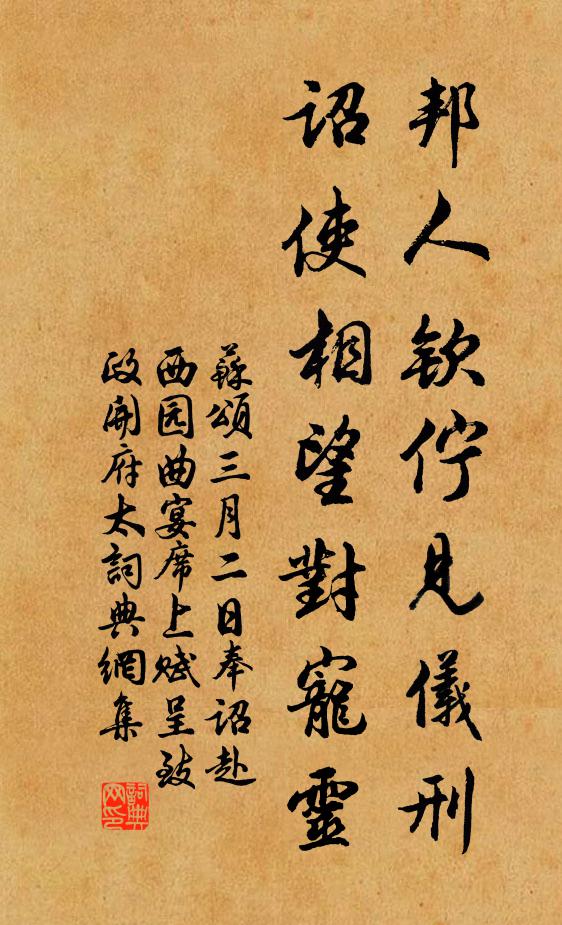 邦人欽佇見儀刑
詔使相望對寵靈
蘇頌三月二日奉詔赴
西园曲宴席上赋呈致
政開府太詞典網集
詞典
网印